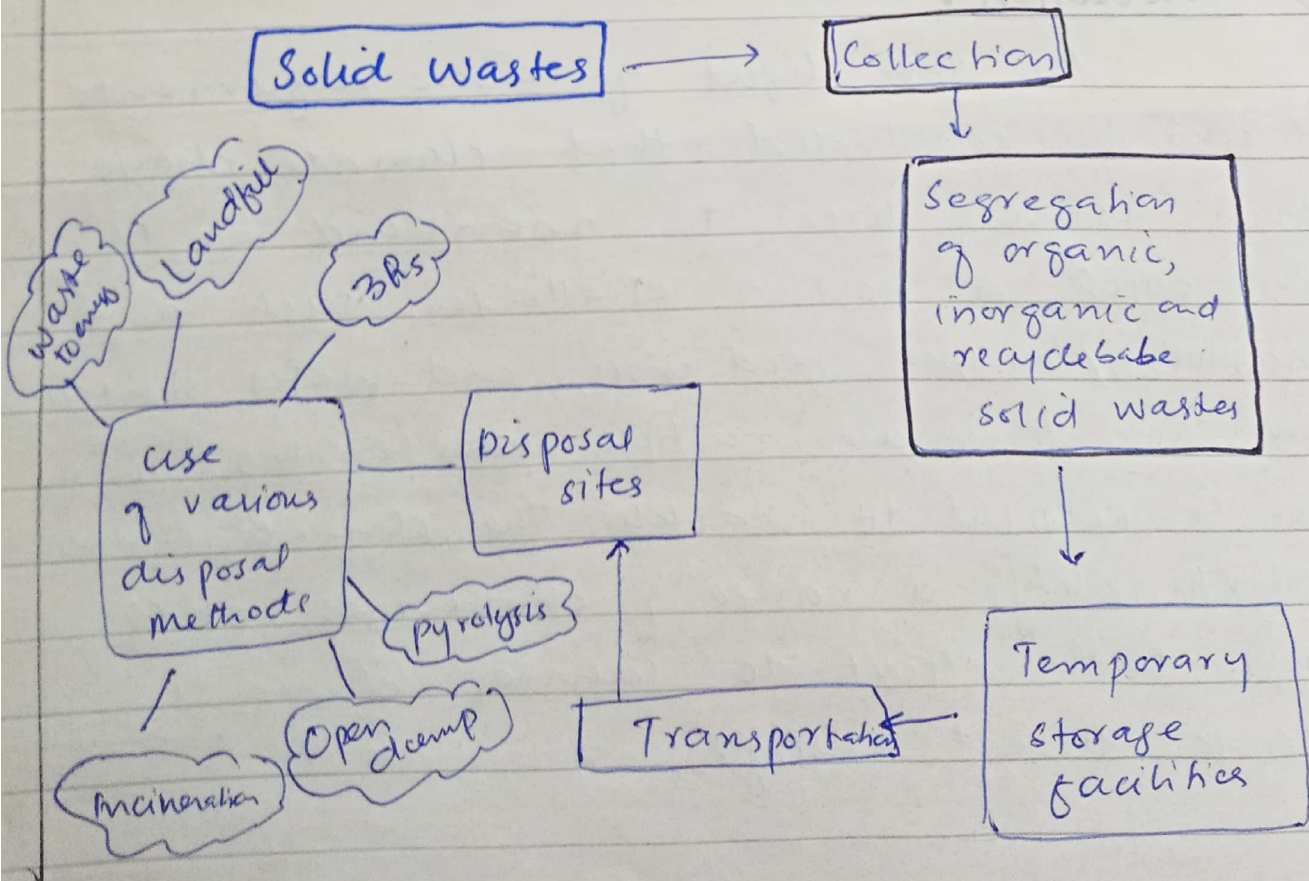 Solid Wastes
Collection
Segregation
of organic,
inorganic and
recyclebabe
solid wastes
Temporary
storage
facilities
Transportation
Disposal
sites
Use
of various
disposal
methods
Waste
to energy
Landfill
3Rs
Pyrolysis
Open
dump
Incineration